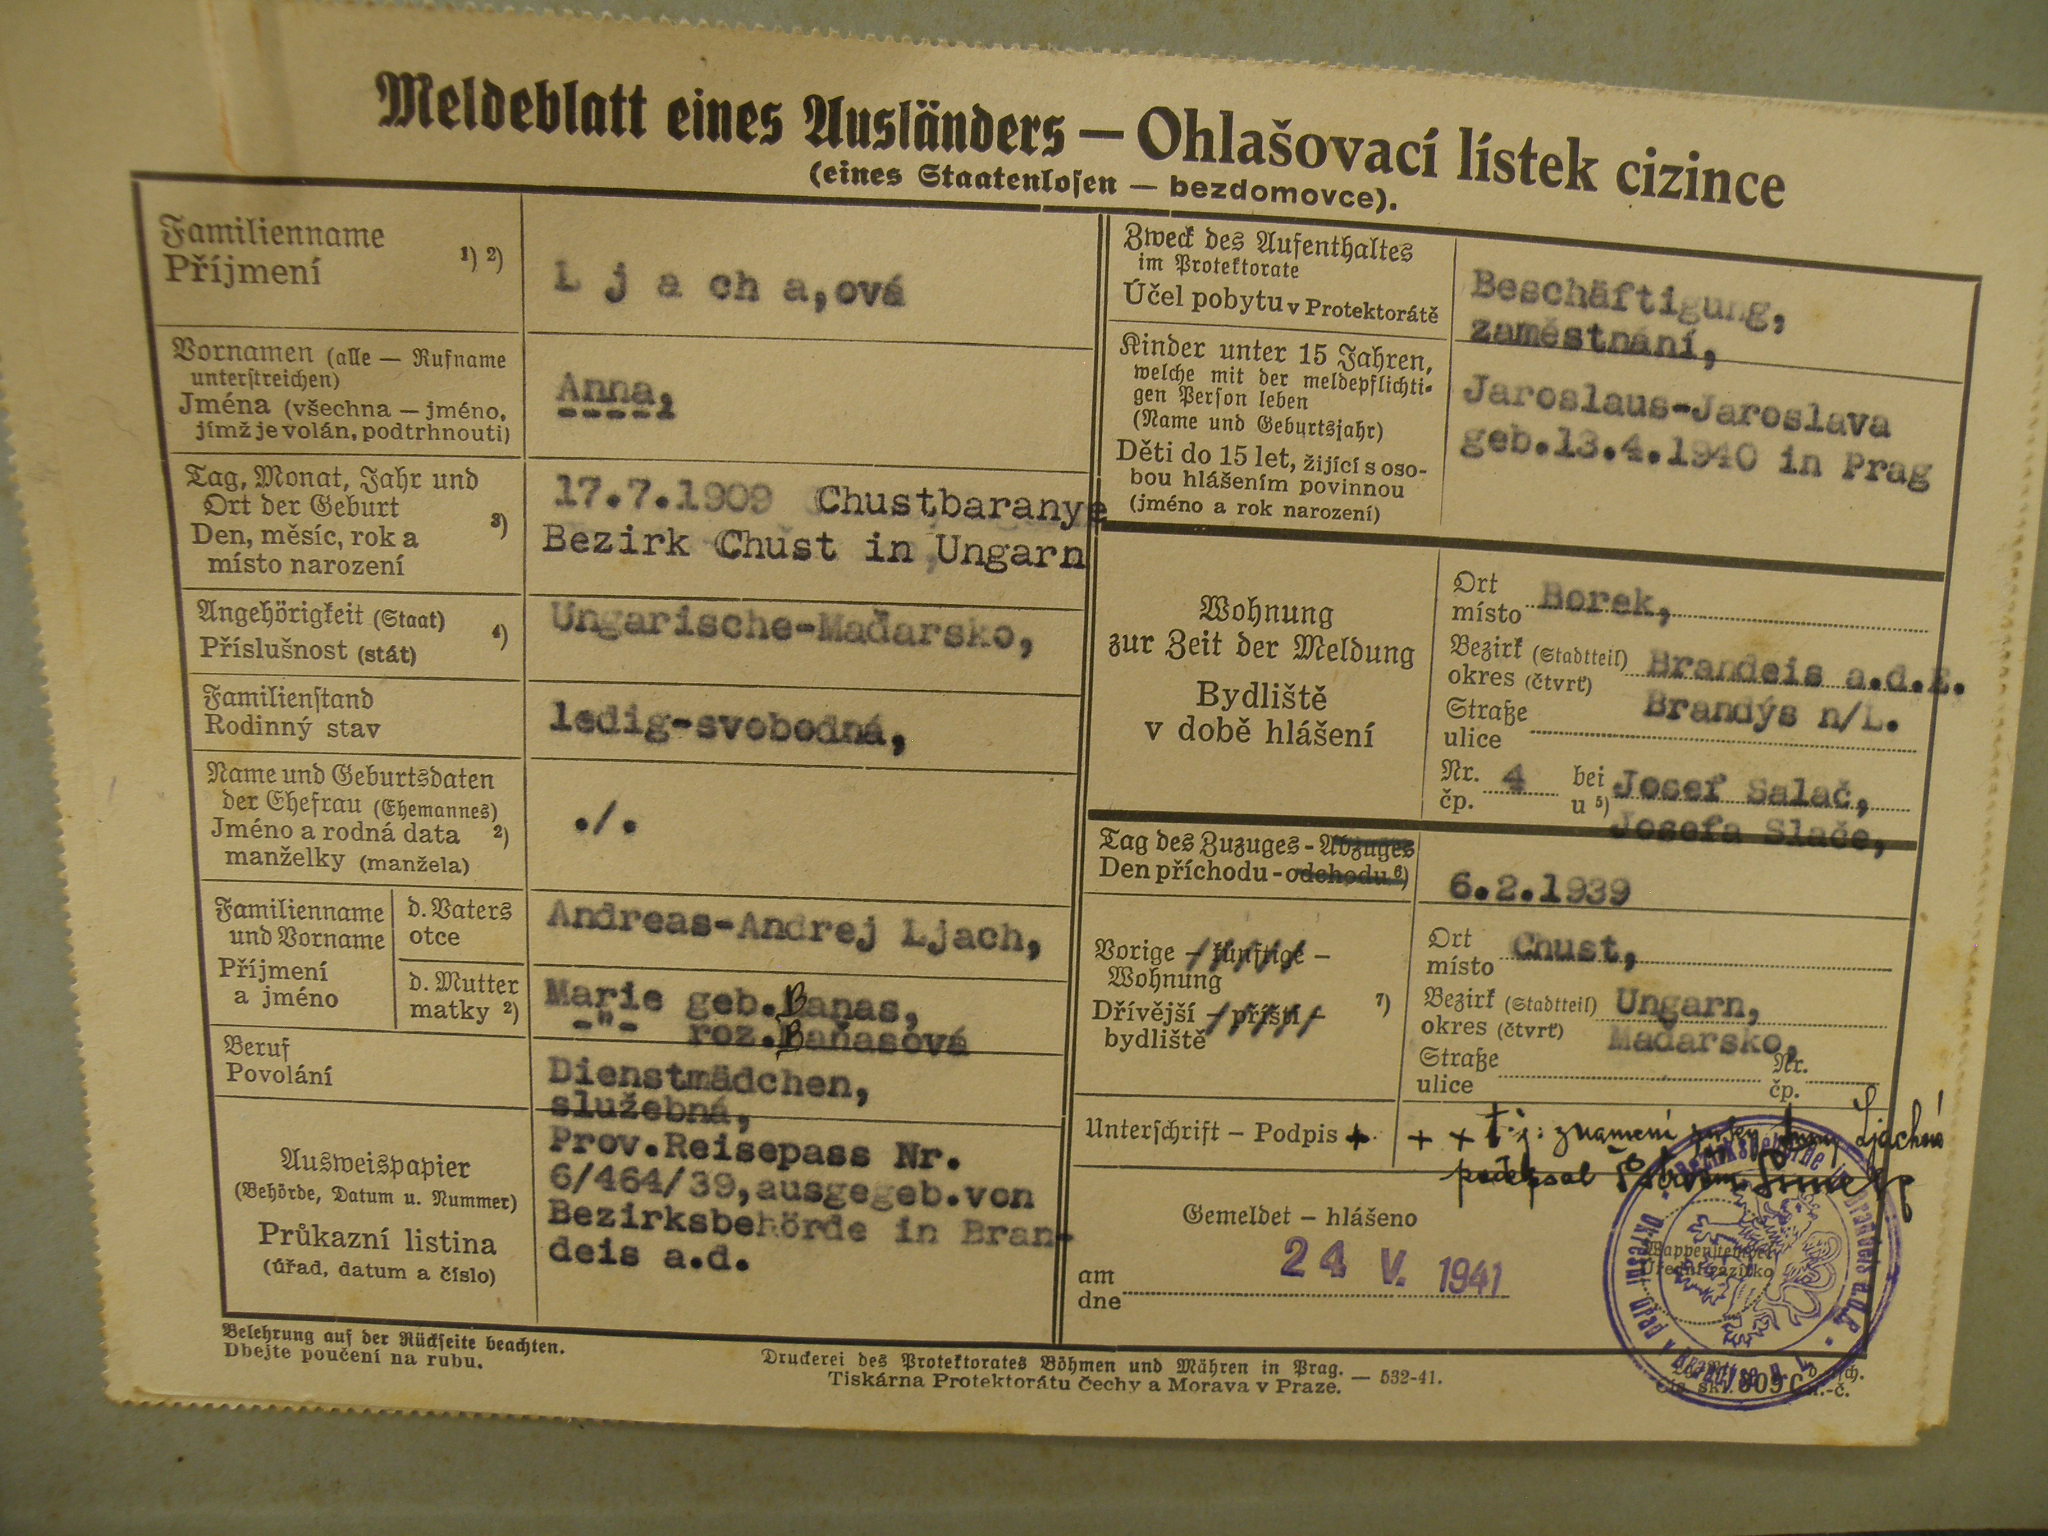 Meldeblatt eines Ausländers — Ohlašovací lístek cizince
(eines Staatenlosen — bezdomovce).
Familienname 1) 2)
Příjmení
L j a ch a,ová
Vornamen (alle — Rufname
unterstreichen)
Jména (všechna — jméno,
jímž je volán, podtrhnouti)
Anna,
Tag, Monat, Jahr und
Ort der Geburt 3)
Den, měsíc, rok a
místo narození
17.7.1909 Chustbaranye
Bezirk Chust in Ungarn
Angehörigkeit (Staat) 4)
Příslušnost (stát)
Ungarische-Maďarsko,
Familienstand
Rodinný stav
ledig-svobodná,
Name und Geburtsdaten
der Ehefrau (Ehemannes)
Jméno a rodná data 2)
manželky (manžela)
./.
Familienname
und Vorname
Příjmení
a jméno
d. Vaters
otce
Andreas-Andrej Ljach,
d. Mutter
matky 2)
Marie geb.Baňas,
-"- roz.Baňasová
Beruf
Povolání
Dienstmädchen,
služebná,
Ausweispapier
(Behörde, Datum u. Nummer)
Průkazní listina
(úřad, datum a číslo)
Prov.Reisepass Nr.
6/464/39,ausgegeb.von
Bezirksbehörde in Bran-
deis a.d.
Zweck des Aufenthaltes
im Protektorate
Účel pobytu v Protektorátě
Beschäftigung,
zaměstnání,
Kinder unter 15 Jahren,
welche mit der meldepflichti-
gen Person leben
(Name und Geburtsjahr)
Děti do 15 let, žijící s oso-
bou hlášením povinnou
(jméno a rok narození)
Jaroslaus-Jaroslava
geb.13.4.1940 in Prag
Wohnung
zur Zeit der Meldung
Bydliště
v době hlášení
Ort
místo Borek,
Bezirk (Stadtteil)
okres (čtvrť) Brandeis a.d.E.
Brandýs n/L.
Straße
ulice
Nr. 4 bei Josef Salač,
čp. u 5)
Josefa Slače,
Tag des Zuzuges - Abzuges
Den příchodu - odchodu 6)
6.2.1939
Vorige - künftige -
Wohnung
Dřívější - příští - 7)
bydliště
Ort
místo Chust,
Bezirk (Stadtteil) Ungarn,
okres (čtvrť) Maďarsko,
Straße Nr.
ulice čp.
Unterschrift – Podpis +
+ + t.j: znamení Anny Ljachové
podepsal
Gemeldet – hlášeno
am
dne 24 V. 1941
Wappenstempel
Úřední razítko
Belehrung auf der Rückseite beachten.
Dbejte poučení na rubu.
Druckerei des Protektorates Böhmen und Mähren in Prag. — 532-41.
Tiskárna Protektorátu Čechy a Morava v Praze.